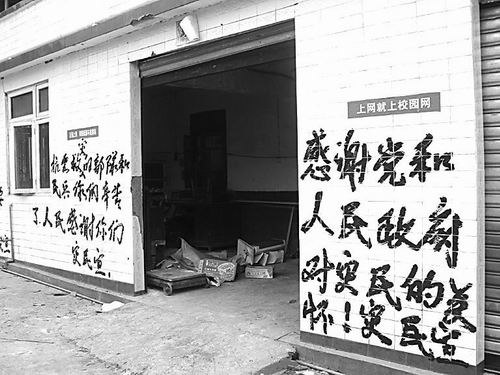 上网就上校园网
抗震救灾的部队和
民兵你们辛苦
了人民感谢你们
灾民宣
感谢党和
人民政府
对灾民的关
怀！灾民宣